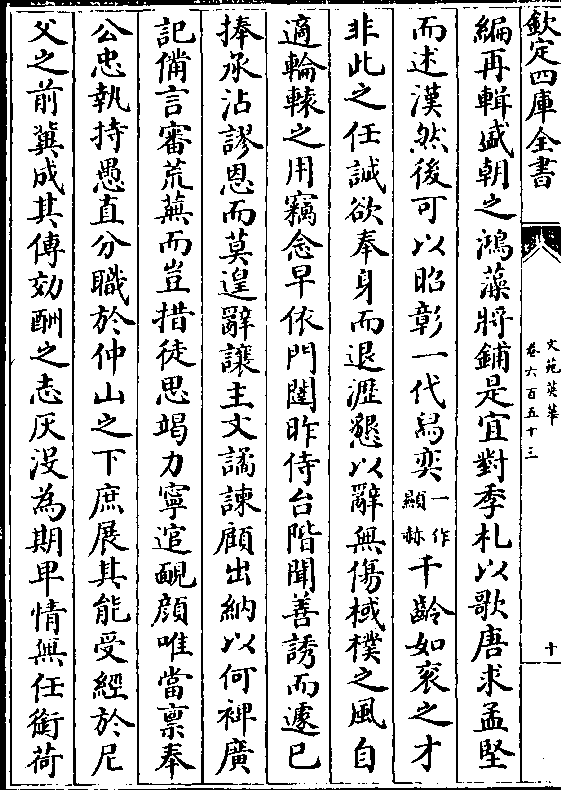 欽定四庫全書
文苑英華
卷六百五十三
十
編再輯盛朝之鴻藻將鋪是宜對季札以歌唐求孟堅
而述漢然後可以昭彰一代舄奕一作顯赫千齡如衮之才
非此之任誠欲奉身而退瀝懇以辭無傷棫樸之風自
適輪轅之用竊念早依門闥昨侍台階聞善誘而遽已
捧承沾謬恩而莫遑辭讓主文譎諫顧出納以何裨廣
記備言審荒蕪而豈措徒思竭力寧逭靦顔唯當禀奉
公忠執持愚直分職於仲山之下庶展其能受經於尼
父之前冀成其傳効酬之志厌沒為期卑情無任銜荷